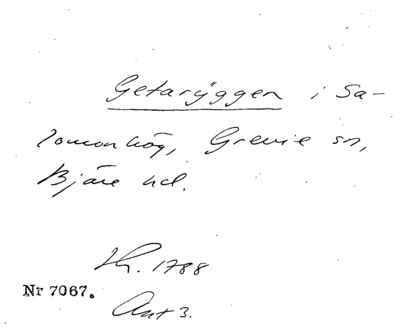 Getaryggen i Sa-
lomonhög, Grevie sn,
Bjäre hd.
Lh. 1788
Nr 7067.
Akt 3.